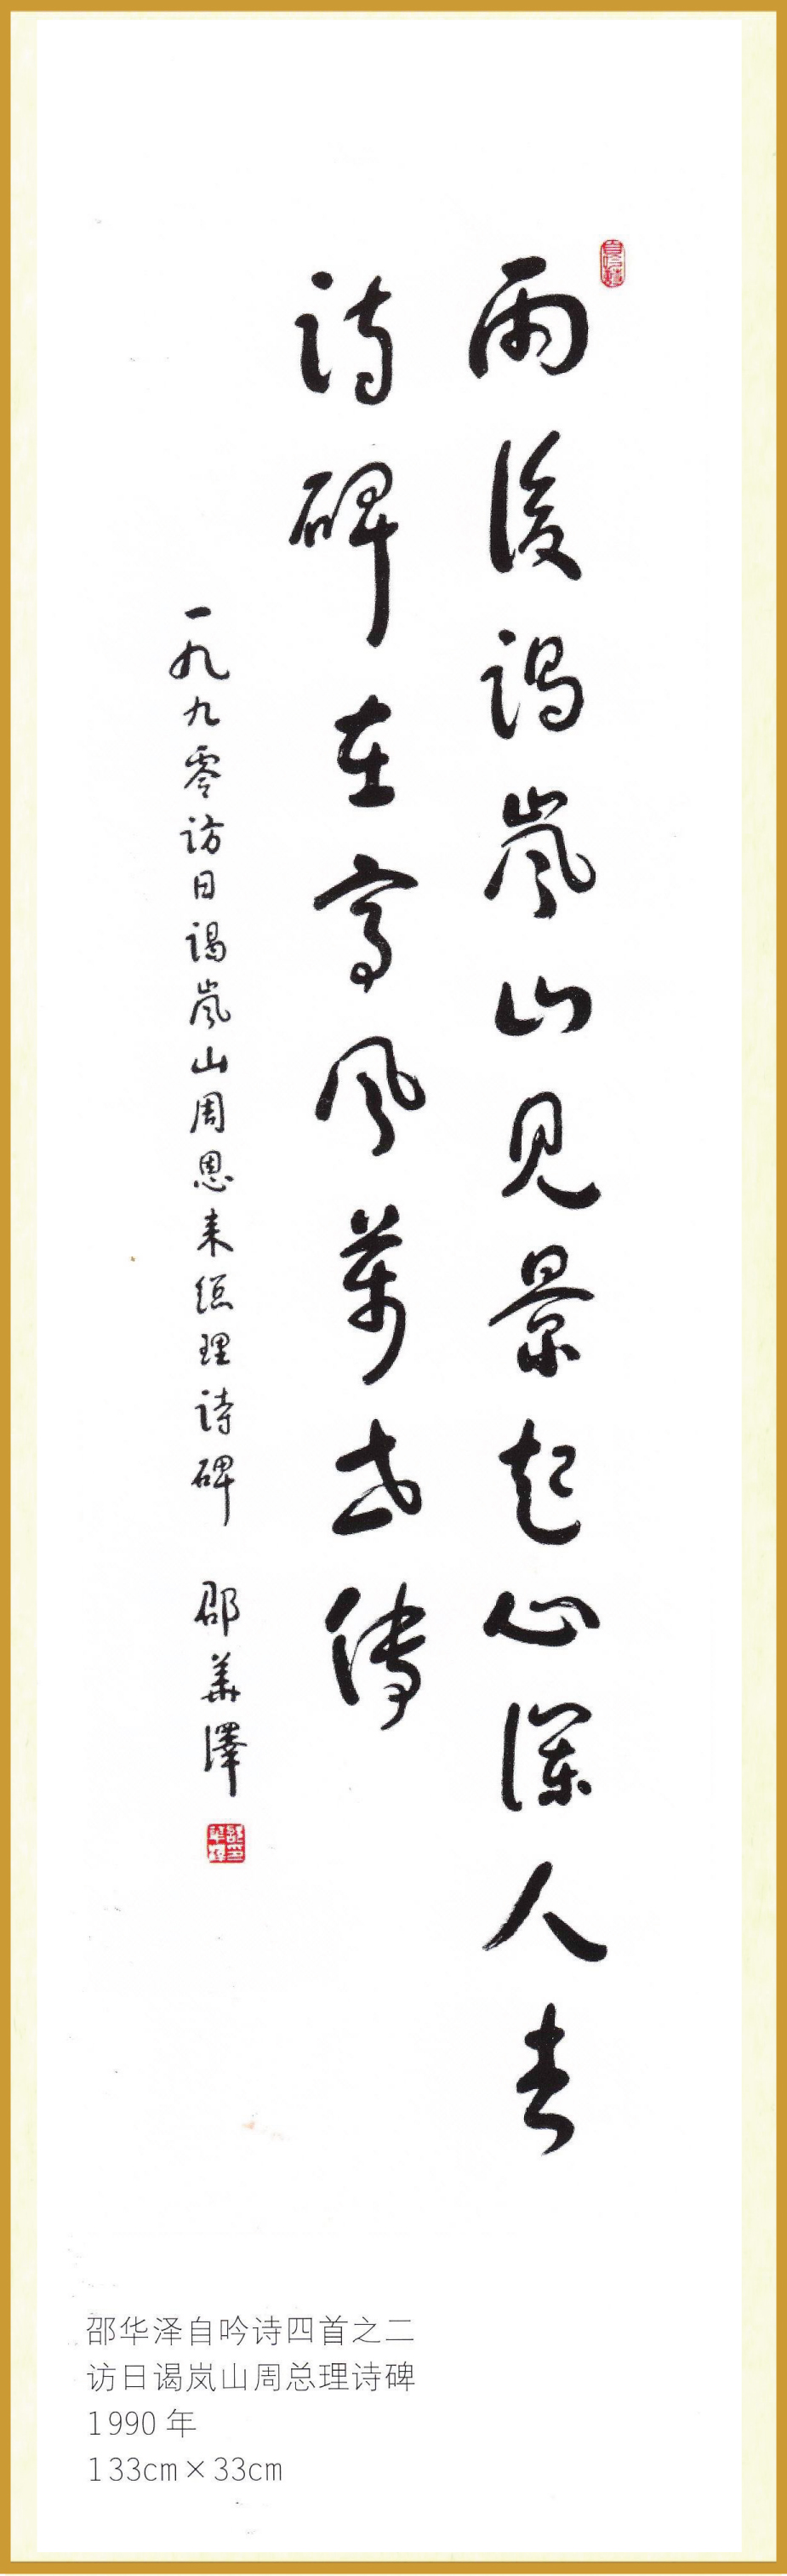 雨後谒岚山见景起心澜人去
诗碑在高风萬世傳
一九九零访日谒岚山周恩来總理诗碑 邵華澤
邵华泽自吟诗四首之二
访日谒岚山周总理诗碑
1990 年
133cm×33cm